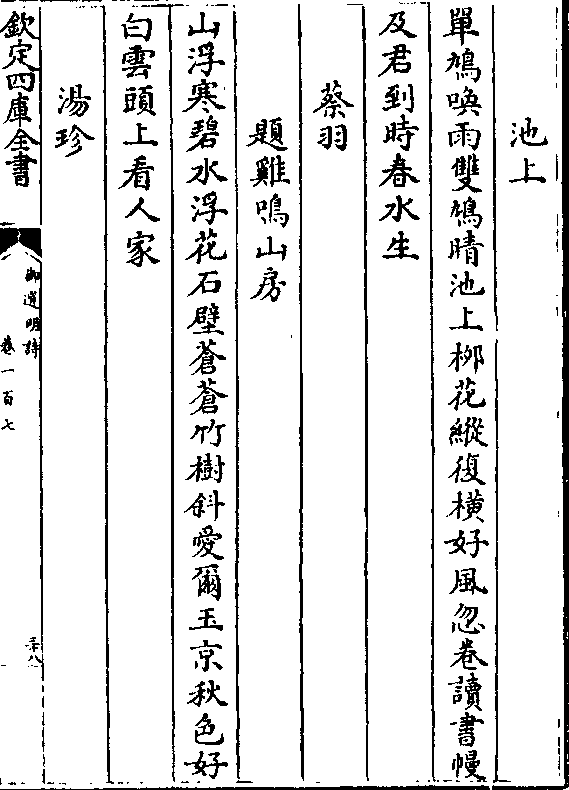 池上
單鳩喚雨雙鳩晴池上桞花縱復橫好風忽卷讀書幔
及君到時春水生
蔡羽
題雞鳴山房
山浮寒碧水浮花石壁蒼蒼竹樹斜愛爾玉京秋色好
白雲頭上看人家
湯珍
欽定四庫全書
御選明詩
卷一百七
三十八